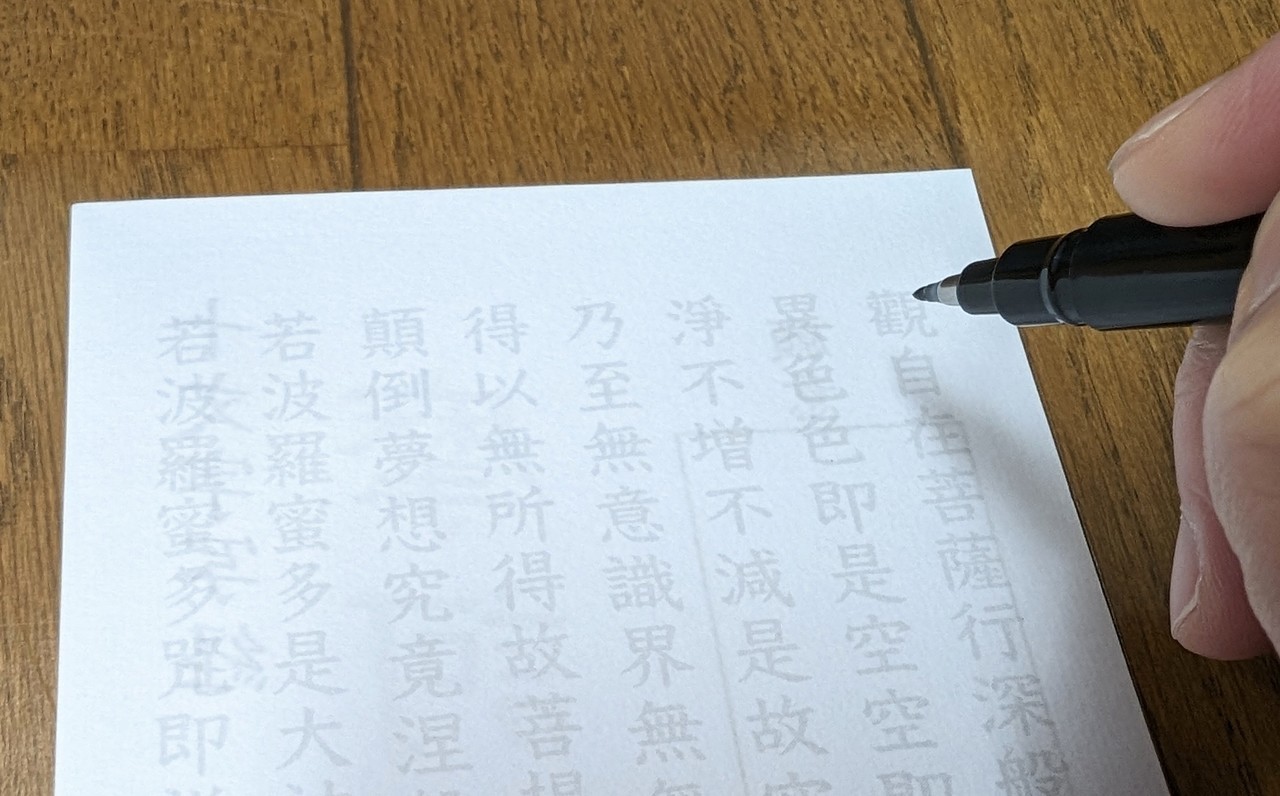 觀自在菩薩行深般
異色色即是空空即
淨不増不減是故空
乃至無意識界無無
得以無所得故菩提
顛倒夢想究竟涅
若波羅蜜多是大
若波羅蜜多呪即